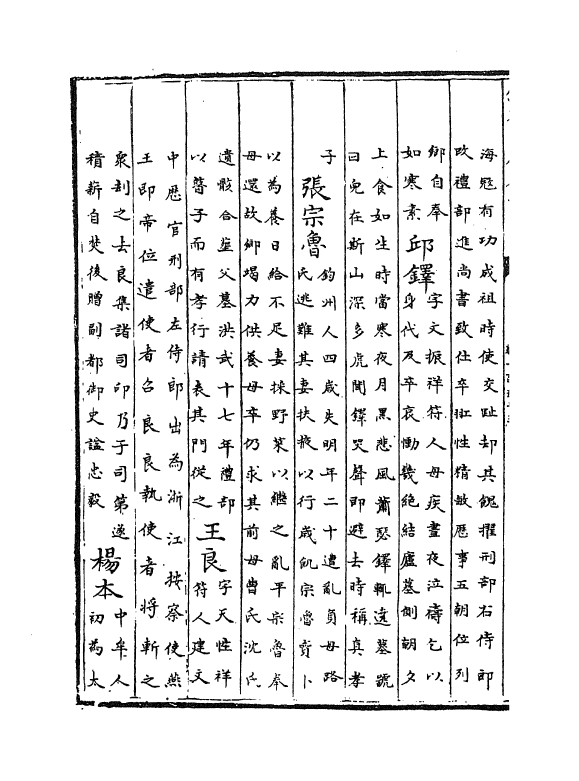 海寇有功成祖時使交趾却其餽擢刑部右侍郎
改禮部進尚書致仕卒羾性精敏歷事五朝位列
卿自奉
如寒素
邱鐸
字文振祥符人母疾晝夜泣禱乞以
身代及卒哀慟幾絶結廬墓側朝夕
上食如生時當寒夜月黑悲風蕭瑟鐸輒遶墓號
曰兒在斯山深多虎聞鐸哭聲即避去時稱真孝
子
張宗魯
鈞州人四歲失明年二十遭亂負母路
氏逃難其妻扶掖以行歲飢宗魯賣卜
以為養日給不足妻採野菜以繼之亂平宗魯奉
母還故鄉竭力供養母卒仍求其前母曹氏沈氏
遺骸合塟父墓洪武十七年禮部
以瞽子而有孝行請表其門從之
王良
字天性祥
符人建文
中歷官刑部左侍郎出為浙江按察使燕
王即帝位遣使者召良良執使者將斬之
衆刦之去良集諸司印乃于司第遂
積薪自焚後贈副都御史諡忠毅
楊本
中牟人
初為太